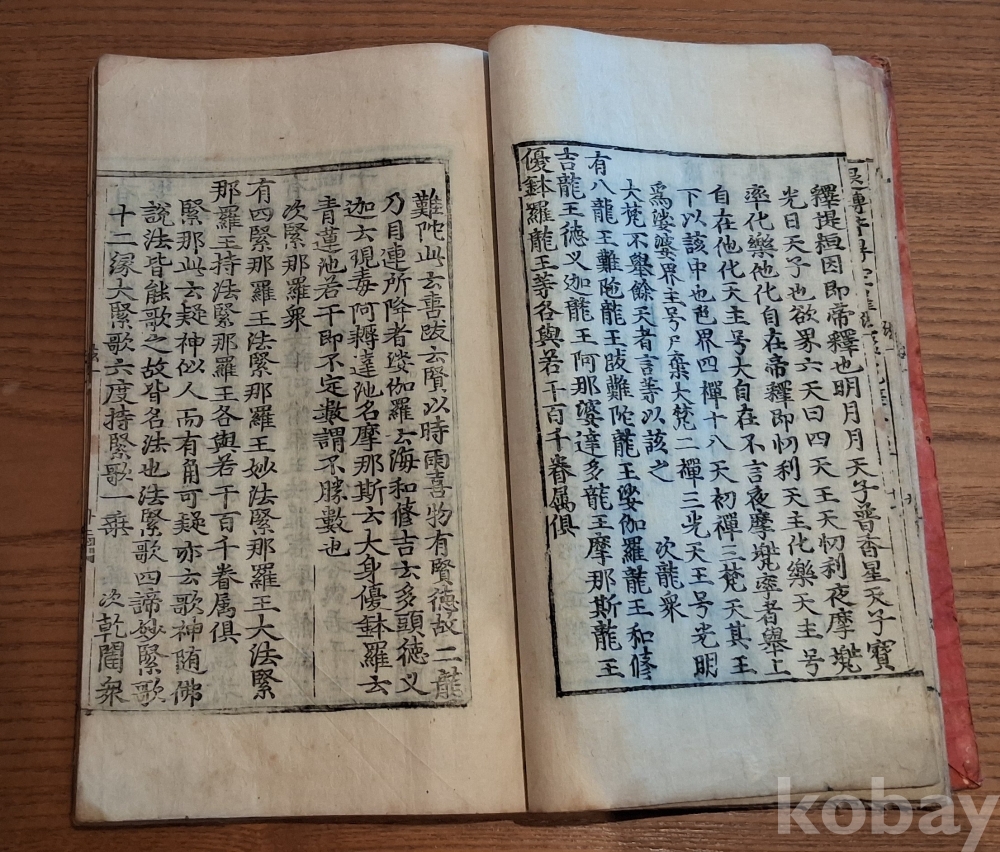 釋提桓因即帝釋也明月月天子普香星天子寶
光日天子也欲界六天曰四天王天忉利夜摩兠
率化樂他化自在帝釋即忉利天主化樂天主号
自在他化天主号大自在不言夜摩兠率者舉上
下以該中也色界四禪十八天初禪三梵天其王
爲娑婆界主号尸棄大梵二禪三光天王号光明
大梵不舉餘天者言等以該之 次龍衆
有八龍王難陁龍王跋難陀龍王娑伽羅龍王和修
吉龍王德义迦龍王阿那婆達多龍王摩那斯龍王
優鉢羅龍王等各與若干百千眷属俱
難陀此云喜跋云賢以時雨喜物有賢德故二龍
乃目連所降者娑伽羅云海和修吉云多頭德义
迦云現毒阿耨達池名摩那斯云大身優鉢羅云
青蓮池若干即不定數謂不勝數也
次緊那羅衆
有四緊那羅王法緊那羅王妙法緊那羅王大法緊
那羅王持法緊那羅王各與若干百千眷属俱
緊那此云疑神似人而有角可疑亦云歌神随佛
說法皆能歌之故皆名法也法緊歌四諦妙緊歌
十二縁大緊歌六度持緊歌一乘 次乾闥衆
kobay